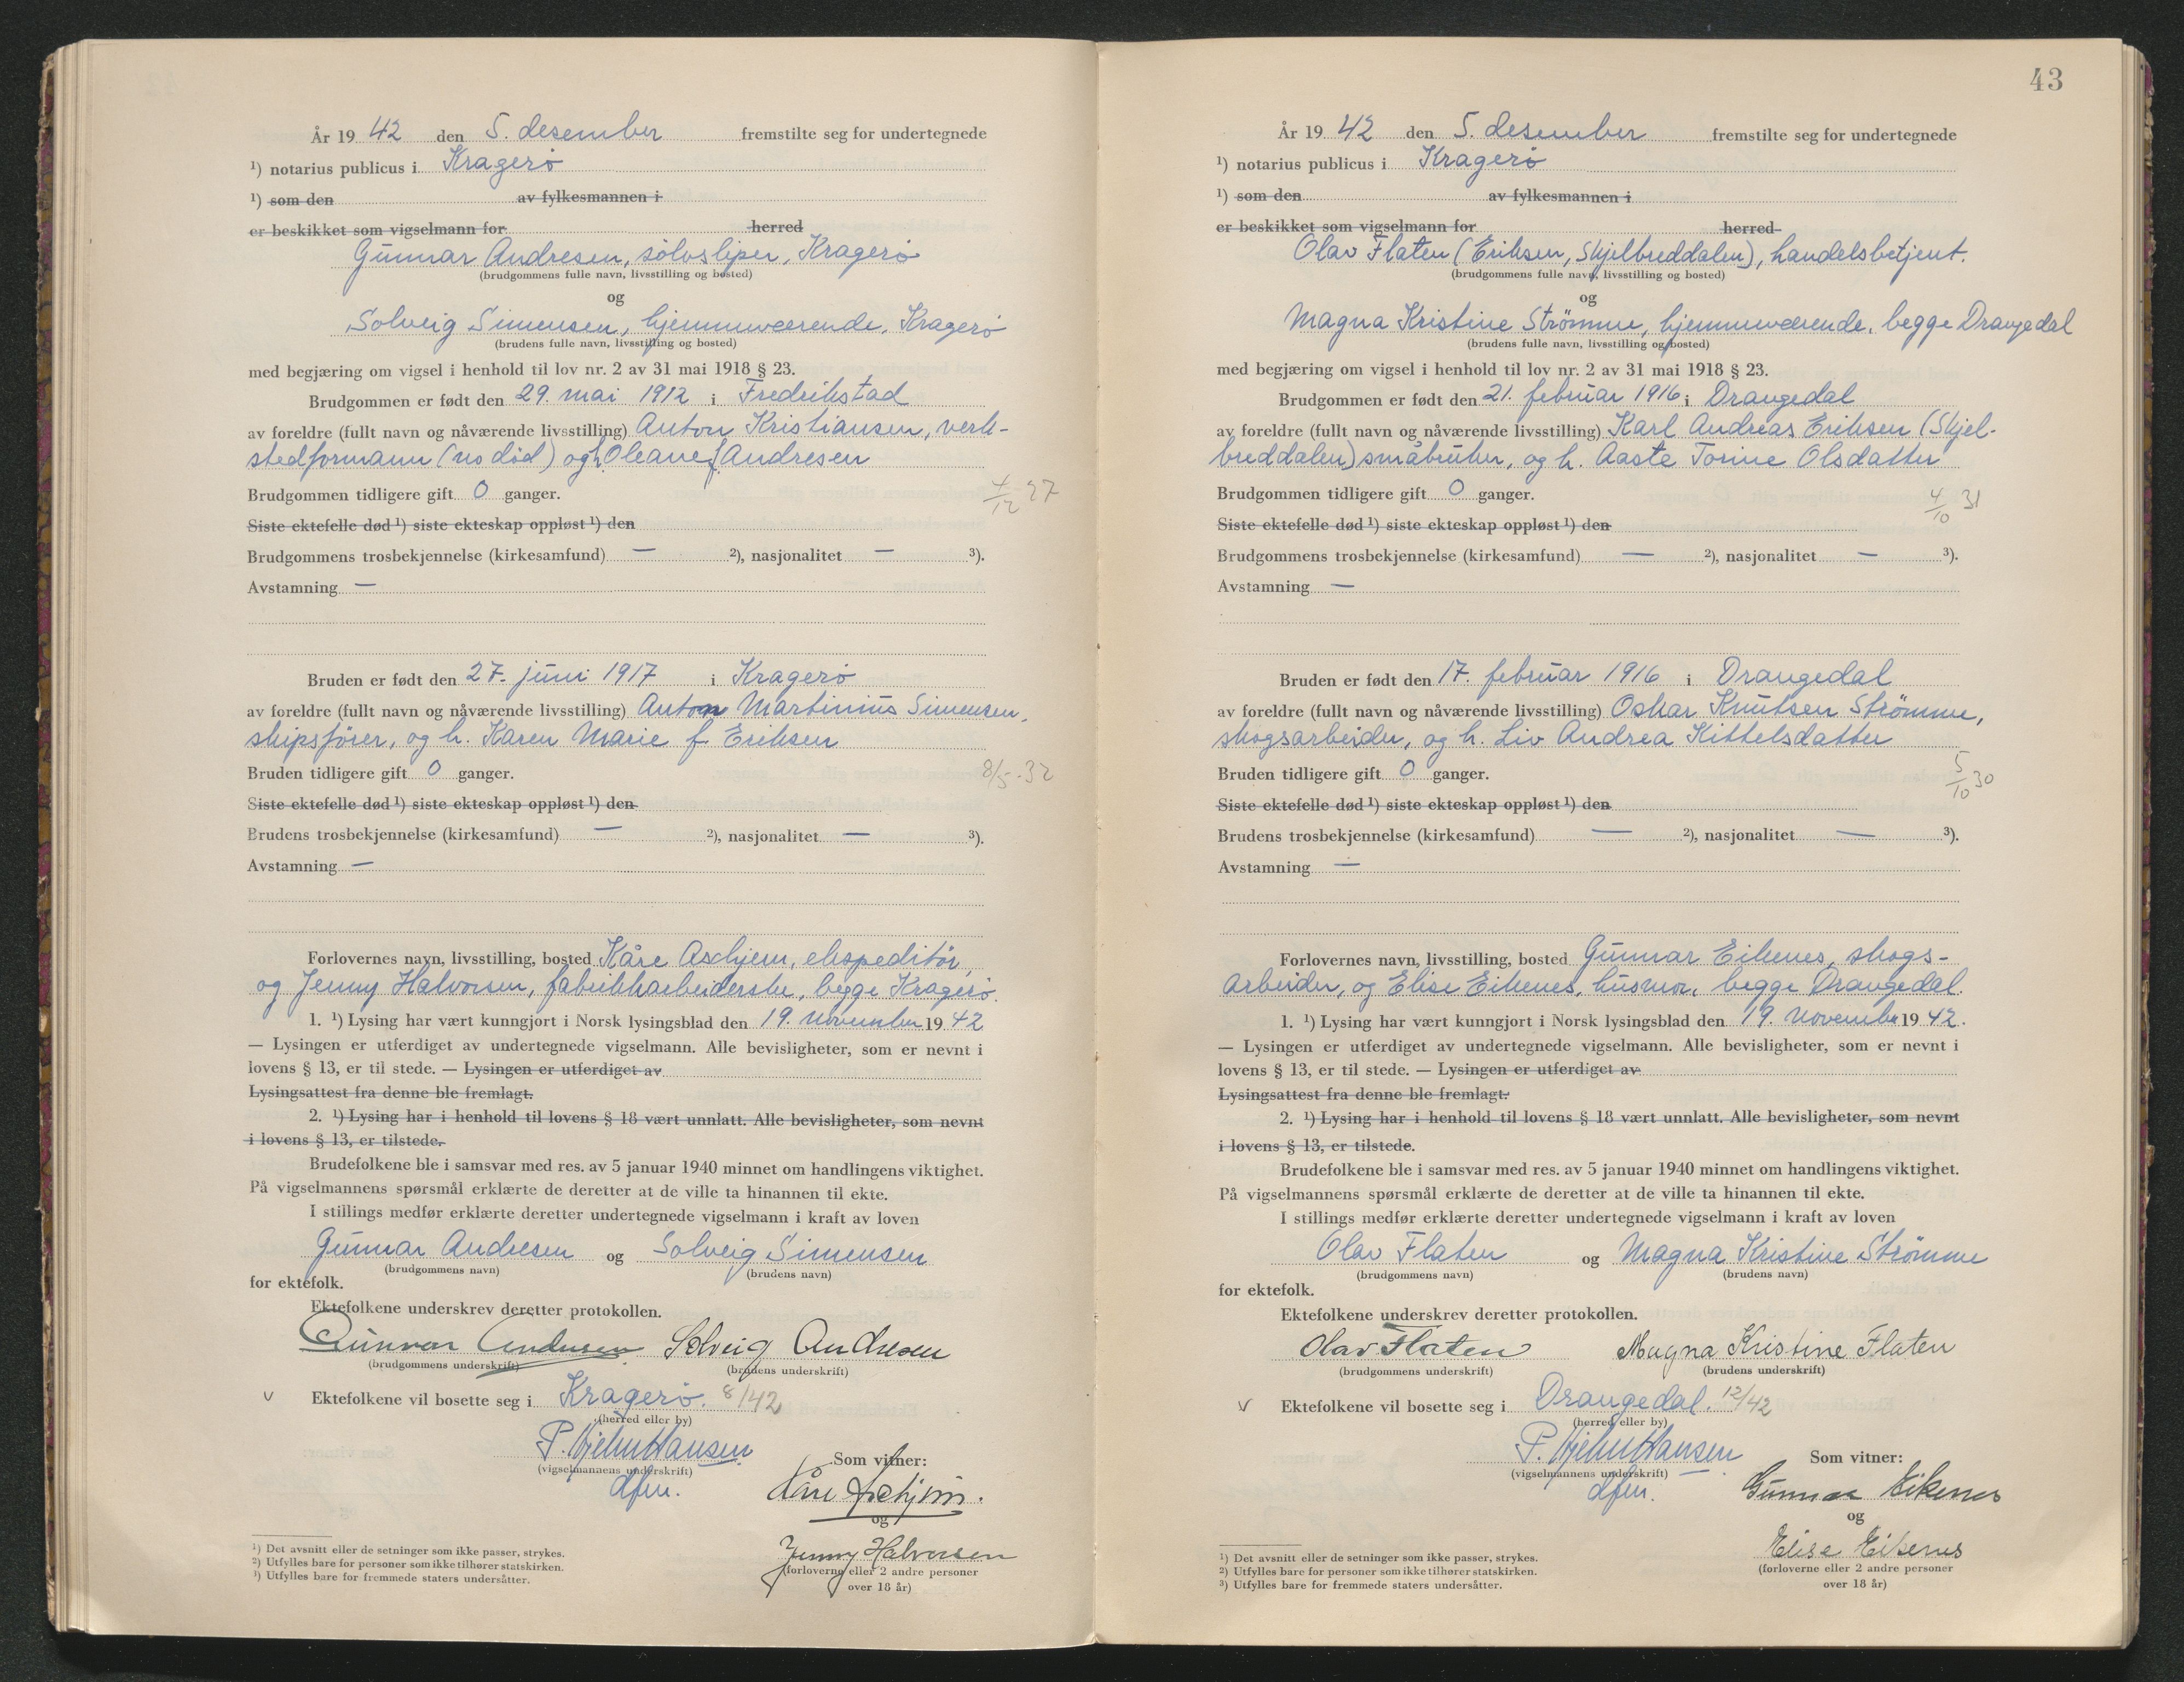 År 19 42 den 5. desember fremstilte seg for undertegnede
¹) notarius publicus i Kragerö
¹) som den av fylkesmannen i
er beskikket som vigselmann for herred
Gunnar Andresen, sölvsliper, Kragerö
(brudgommens fulle navn, livsstilling og bosted)
og
Solveig Simensen, hjemmeværende, Kragerö
(brudens fulle navn, livsstilling og bosted)
med begjæring om vigsel i henhold til lov nr. 2 av 31 mai 1918 § 23.
Brudgommen er født den 29. mai 1912 i Fredrikstad
av foreldre (fullt navn og nåværende livsstilling) Anton Kristiansen, verk-
stedformann (no död) og h. Oleane f. Andresen
Brudgommen tidligere gift 0 ganger.
4/12 27
Siste ektefelle død ¹) siste ekteskap oppløst ¹) den
Brudgommens trosbekjennelse (kirkesamfund) — ²), nasjonalitet — ³).
Avstamning —
Bruden er født den 27. juni 1917 i Kragerö
av foreldre (fullt navn og nåværende livsstilling) Anton Martinius Simensen,
skipsförer, og h. Karen Marie f. Eriksen
Bruden tidligere gift 0 ganger. 8/5-32
Siste ektefelle død ¹) siste ekteskap oppløst ¹) den
Brudens trosbekjennelse (kirkesamfund) — ²), nasjonalitet — ³).
Avstamning —
Forlovernes navn, livsstilling, bosted Kåre Aschjem, ekspeditör,
og Jenny Halvorsen, fabrikkarbeiderske, begge Kragerö.
1. ¹) Lysing har vært kunngjort i Norsk lysingsblad den 19. november 19 42
— Lysingen er utferdiget av undertegnede vigselmann. Alle bevisligheter, som er nevnt i
lovens § 13, er til stede. — Lysingen er utferdiget av
Lysingsattest fra denne ble fremlagt.
2. ¹) Lysing har i henhold til lovens § 18 vært unnlatt. Alle bevisligheter, som nevnt
i lovens § 13, er tilstede.
Brudefolkene ble i samsvar med res. av 5 januar 1940 minnet om handlingens viktighet.
På vigselmannens spørsmål erklærte de deretter at de ville ta hinannen til ekte.
I stillings medfør erklærte deretter undertegnede vigselmann i kraft av loven
Gunnar Andresen og Solveig Simensen
(brudgommens navn) (brudens navn)
for ektefolk.
Ektefolkene underskrev deretter protokollen.
Gunnar Andresen Solveig Andresen
(brudgommens underskrift) (brudens underskrift)
v Ektefolkene vil bosette seg i Kragerö. 8/42
(herred eller by)
P. Hjelm Hansen
(vigselmannens underskrift)
dfm.
Som vitner:
Kåre Aschjem.
og
Jenny Halvorsen
(forloverne eller 2 andre personer
over 18 år)
¹) Det avsnitt eller de setninger som ikke passer, strykes.
²) Utfylles bare for personer som ikke tilhører statskirken.
³) Utfylles bare for fremmede staters undersåtter.
43
År 19 42 den 5. desember fremstilte seg for undertegnede
¹) notarius publicus i Kragerö
¹) som den av fylkesmannen i
er beskikket som vigselmann for herred
Olav Flaten (Eriksen, Skjelbreddalen), handelsbetjent.
(brudgommens fulle navn, livsstilling og bosted)
og
Magna Kristine Strömme, hjemmeværende, begge Drangedal
(brudens fulle navn, livsstilling og bosted)
med begjæring om vigsel i henhold til lov nr. 2 av 31 mai 1918 § 23.
Brudgommen er født den 21. februar 1916 i Drangedal
av foreldre (fullt navn og nåværende livsstilling) Karl Andreas Eriksen (Skjel-
breddalen) småbruker, og h. Aaste Torine Olsdatter
Brudgommen tidligere gift 0 ganger.
4/10 31
Siste ektefelle død ¹) siste ekteskap oppløst ¹) den
Brudgommens trosbekjennelse (kirkesamfund) — ²), nasjonalitet — ³).
Avstamning —
Bruden er født den 17. februar 1916 i Drangedal
av foreldre (fullt navn og nåværende livsstilling) Oskar Knutsen Strömme,
skogsarbeider, og h. Liv Andrea Kittelsdatter
Bruden tidligere gift 0 ganger. 5/10 30
Siste ektefelle død ¹) siste ekteskap oppløst ¹) den
Brudens trosbekjennelse (kirkesamfund) — ²), nasjonalitet — ³).
Avstamning —
Forlovernes navn, livsstilling, bosted Gunnar Eikenes, skogs-
arbeider, og Elise Eikenes, husmor, begge Drangedal.
1. ¹) Lysing har vært kunngjort i Norsk lysingsblad den 19. november 19 42.
— Lysingen er utferdiget av undertegnede vigselmann. Alle bevisligheter, som er nevnt i
lovens § 13, er til stede. — Lysingen er utferdiget av
Lysingsattest fra denne ble fremlagt.
2. ¹) Lysing har i henhold til lovens § 18 vært unnlatt. Alle bevisligheter, som nevnt
i lovens § 13, er tilstede.
Brudefolkene ble i samsvar med res. av 5 januar 1940 minnet om handlingens viktighet.
På vigselmannens spørsmål erklærte de deretter at de ville ta hinannen til ekte.
I stillings medfør erklærte deretter undertegnede vigselmann i kraft av loven
Olav Flaten og Magna Kristine Strömme
(brudgommens navn) (brudens navn)
for ektefolk.
Ektefolkene underskrev deretter protokollen.
Olav Flaten Magna Kristine Flaten
(brudgommens underskrift) (brudens underskrift)
v Ektefolkene vil bosette seg i Drangedal. 12/42
(herred eller by)
P. Hjelm Hansen
(vigselmannens underskrift)
dfm.
Som vitner:
Gunnar Eikenes
og
Elise Eikenes
(forloverne eller 2 andre personer
over 18 år)
¹) Det avsnitt eller de setninger som ikke passer, strykes.
²) Utfylles bare for personer som ikke tilhører statskirken.
³) Utfylles bare for fremmede staters undersåtter.